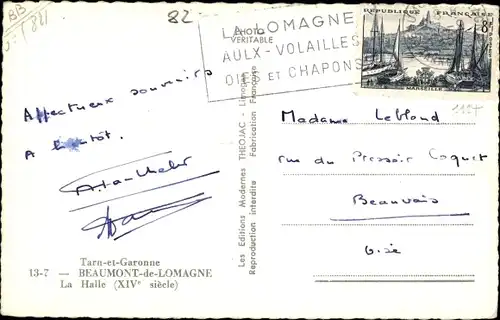 BB
82
PHOTO
VÉRITABLE
LA LOMAGNE
AULX-VOLAILLES
OIES ET CHAPONS
REPUBLIQUE FRANÇAISE
8F
MARSEILLE
Affectueux souvenirs
A bientôt.
Tarn-et-Garonne
13-7 — BEAUMONT-de-LOMAGNE
La Halle (XIVe siècle)
Les Editions Modernes THEOJAC - Limoges
Reproduction interdite - Fabrication Française
Madame Leblond
rue du Pressoir Coquet
Beauvais
Oise